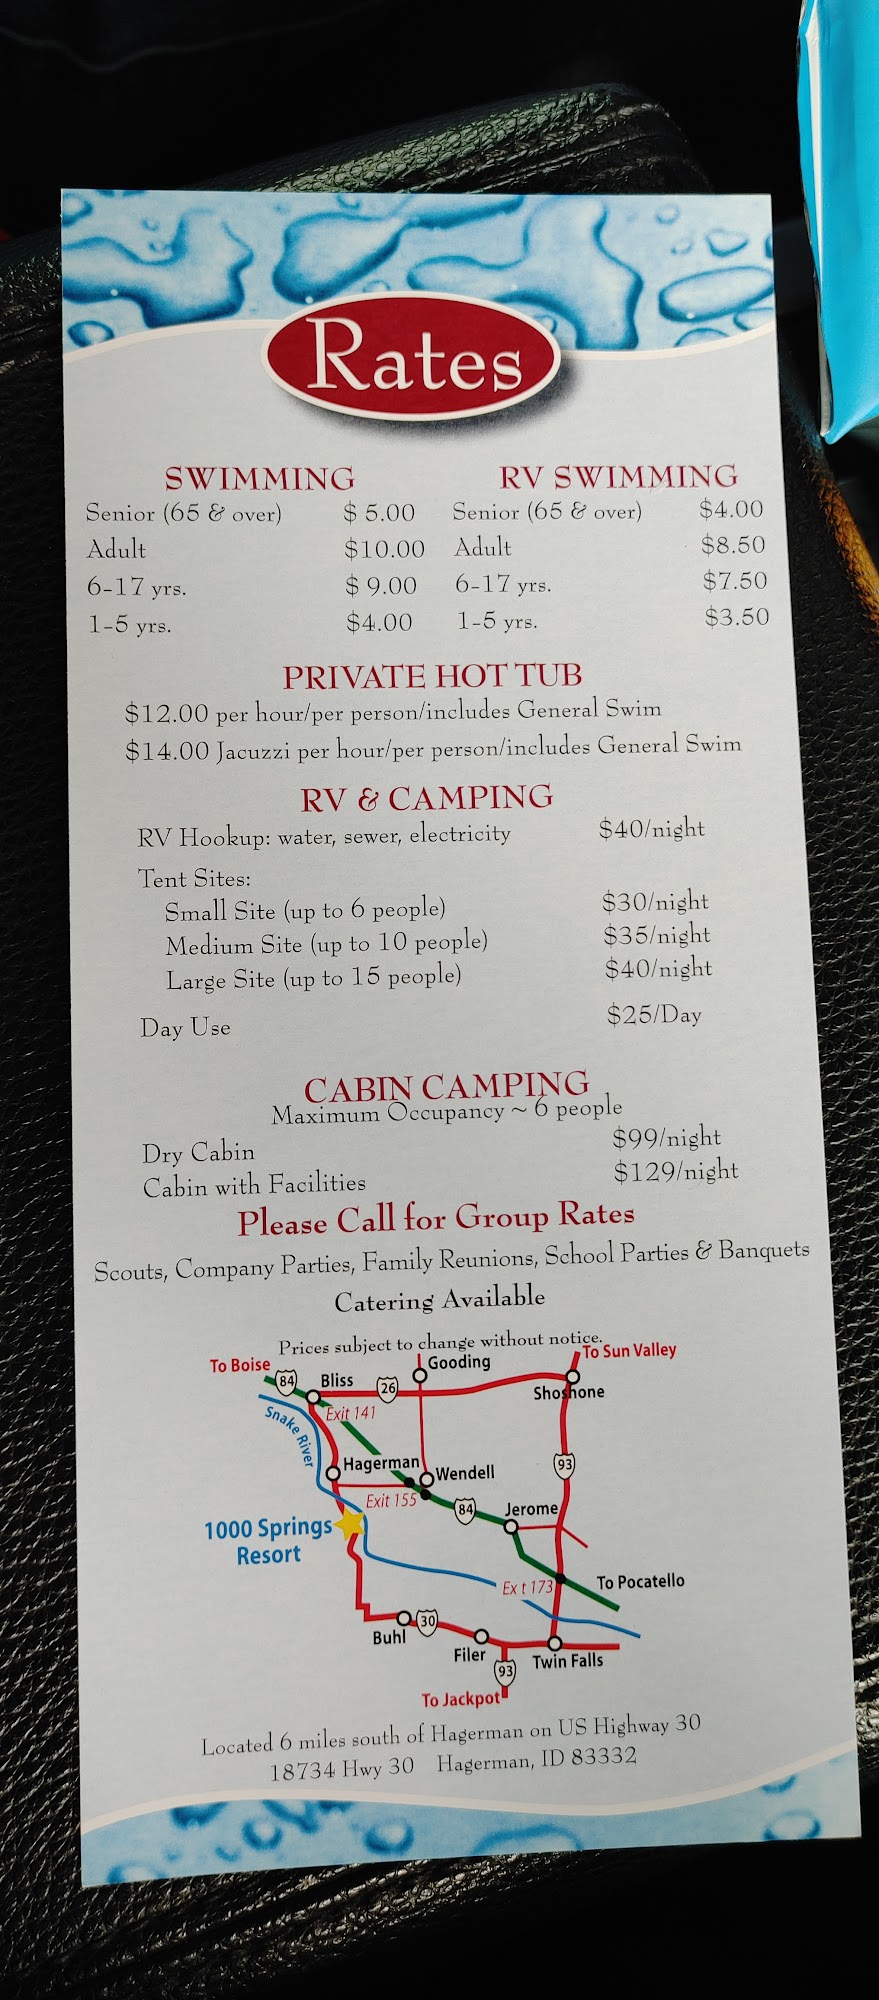 Rates
SWIMMING
Senior (65 & over) $ 5.00
Adult $10.00
6-17 yrs. $ 9.00
1-5 yrs. $4.00
RV SWIMMING
Senior (65 & over) $4.00
Adult $8.50
6-17 yrs. $7.50
1-5 yrs. $3.50
PRIVATE HOT TUB
$12.00 per hour/per person/includes General Swim
$14.00 Jacuzzi per hour/per person/includes General Swim
RV & CAMPING
RV Hookup: water, sewer, electricity $40/night
Tent Sites:
Small Site (up to 6 people) $30/night
Medium Site (up to 10 people) $35/night
Large Site (up to 15 people) $40/night
Day Use $25/Day
CABIN CAMPING
Maximum Occupancy ~ 6 people
Dry Cabin $99/night
Cabin with Facilities $129/night
Please Call for Group Rates
Scouts, Company Parties, Family Reunions, School Parties & Banquets
Catering Available
Prices subject to change without notice.
To Boise
84
Bliss
26
Gooding
To Sun Valley
Shoshone
Exit 141
Snake River
Hagerman
Wendell
93
Exit 155
84
Jerome
1000 Springs
Resort
Ex t 173
To Pocatello
Buhl
30
Filer
93
Twin Falls
To Jackpot
Located 6 miles south of Hagerman on US Highway 30
18734 Hwy 30 Hagerman, ID 83332